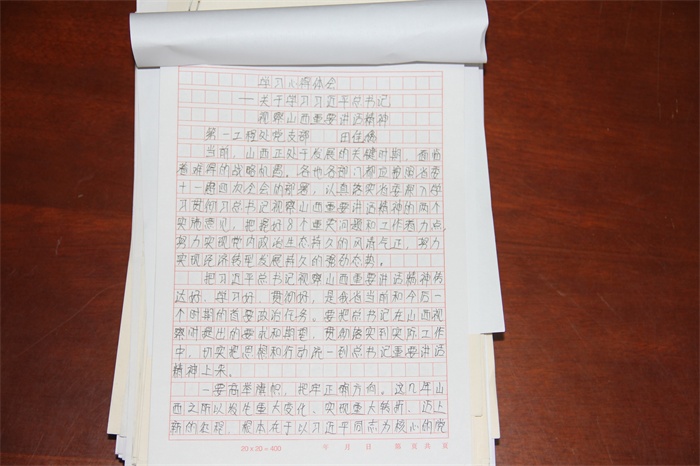 学习心得体会
——关于学习习近平总书记
视察山西重要讲话精神
第一工程处党支部 田佳
当前，山西正处于发展的关键时期，面临
着难得的战略机遇。各地各部门都正按照省委
十一届四次全会的部署，认真落实省委关于学
习贯彻习总书记视察山西重要讲话精神的两个
实施意见，把握好8个重大问题和工作着力点，
努力实现党内政治生态持久的风清气正，努力
实现经济转型发展持久的强劲态势。
把习近平总书记视察山西重要讲话精神传
达好、学习好、贯彻好，是我省当前和今后一
个时期的首要政治任务。要把总书记在山西视
察时提出的要求和期望，贯彻落实到实际工作
中，切实把思想和行动统一到总书记重要讲话
精神上来。
一要高举旗帜，把牢正确方向。这几年山
西之所以发生重大变化、实现重大转折、迈上
新的征程，根本在于以习近平同志为核心的党
20×20=400 年 月 日 第 页 共 页